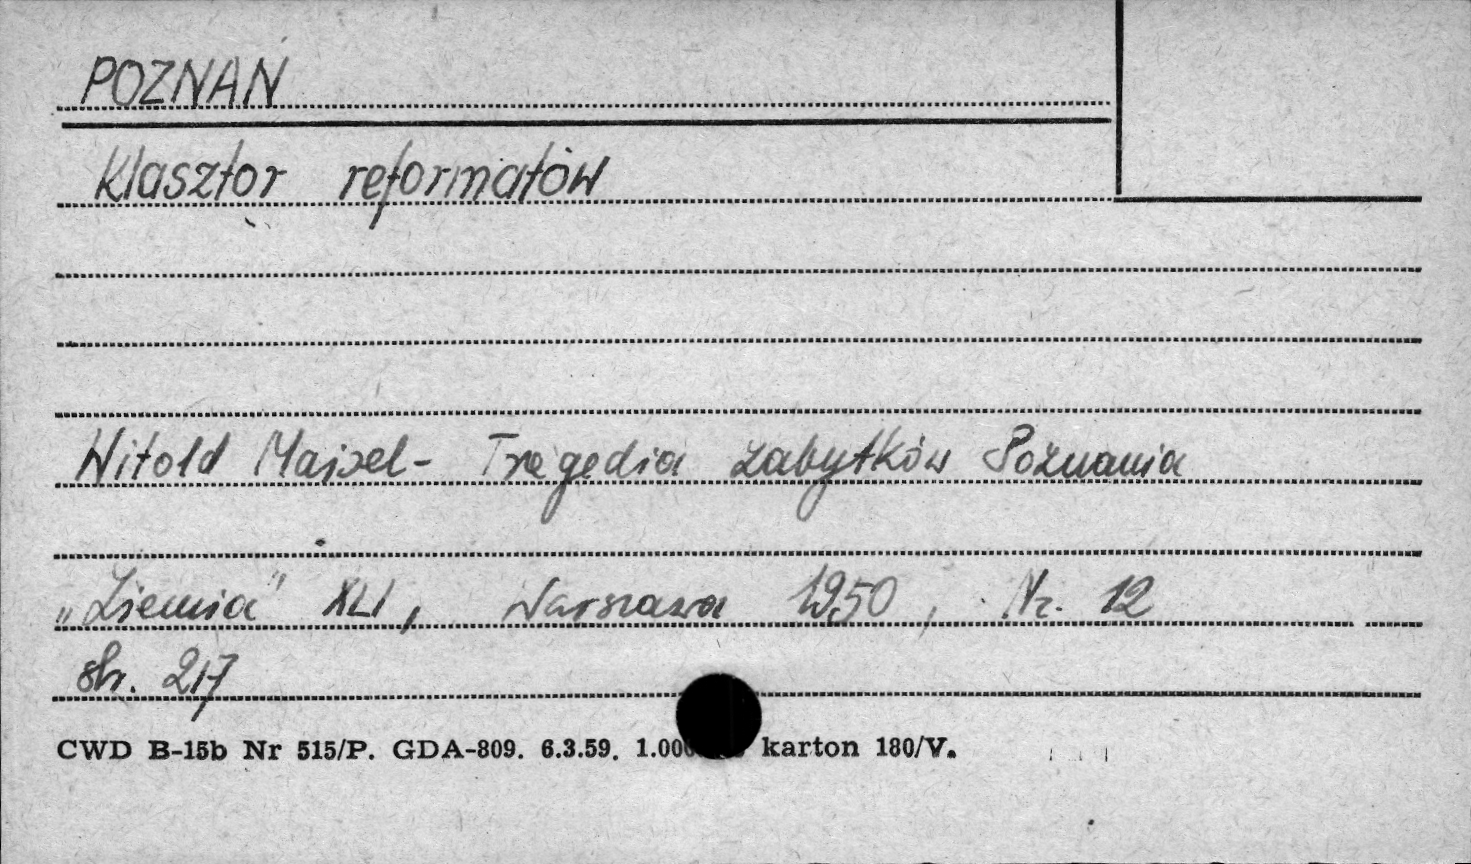 POZNAN
Klasztor reformatów
Witold Maisel - Tragedia zabytków Poznania
„Ziemia" XLI, Warszawa 1950, Nr. 12
str. 217
CWD B-15b Nr 515/P. GDA-809. 6.3.59. karton 180/V.